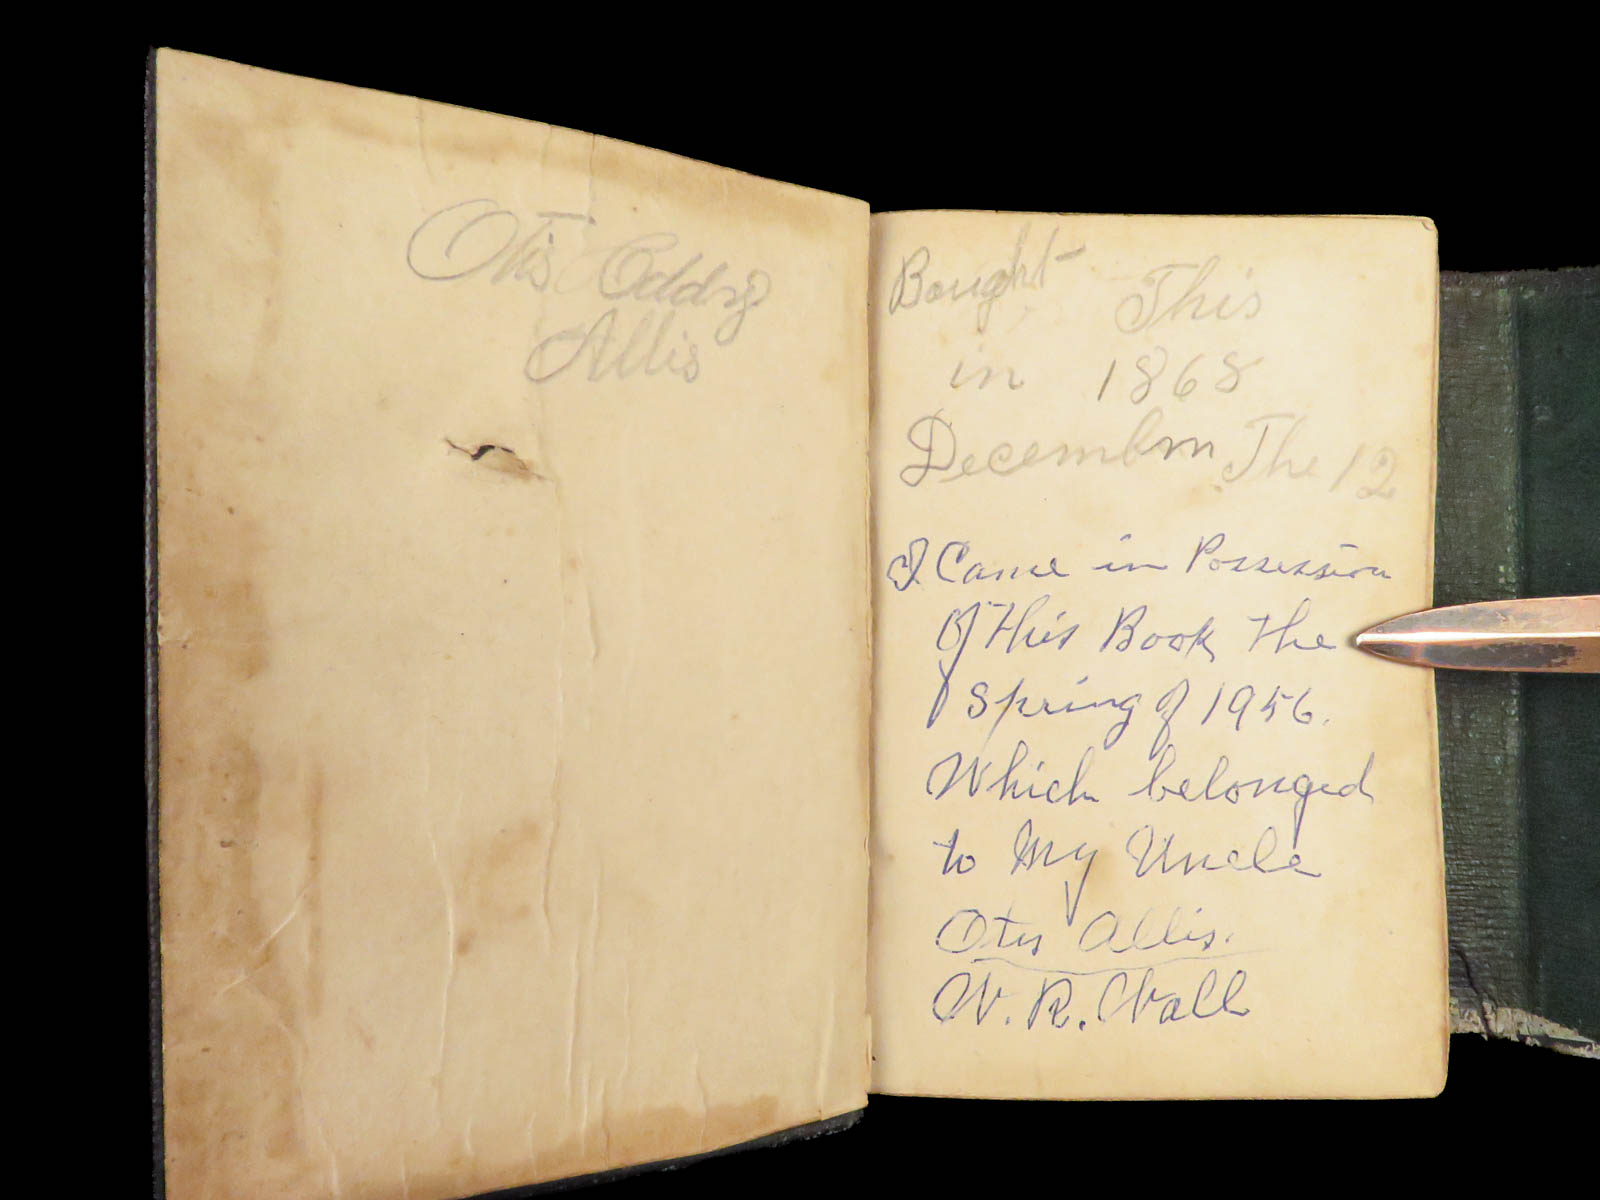 Otis Oddry
Allis
Bought This
in 1868
Decembrn The 12
I Came in Possession
Of This Book The
Spring of 1956.
Which belonged
to My Uncle
Otis Allis.
W. R. Wall